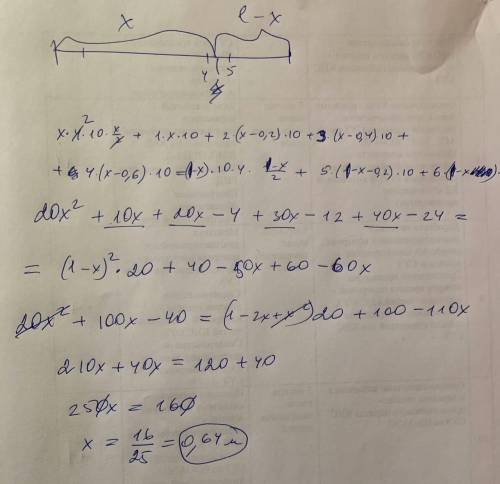 x l-x
4 5
x·4·10·x/2 + 1·x·10 + 2·(x-0,2)·10 + 3·(x-0,4)10 +
+ 4·(x-0,6)·10 = (1-x)·10·4·(1-x)/2 + 5·(1-x-0,2)·10 + 6·(1-x
20x² + 10x + 20x - 4 + 30x - 12 + 40x - 24 =
= (1-x)²·20 + 40 - 50x + 60 - 60x
20x² + 100x - 40 = (1-2x+x²)20 + 100 - 110x
210x + 40x = 120 + 40
250x = 160
x = 16/25 = 0,64 м